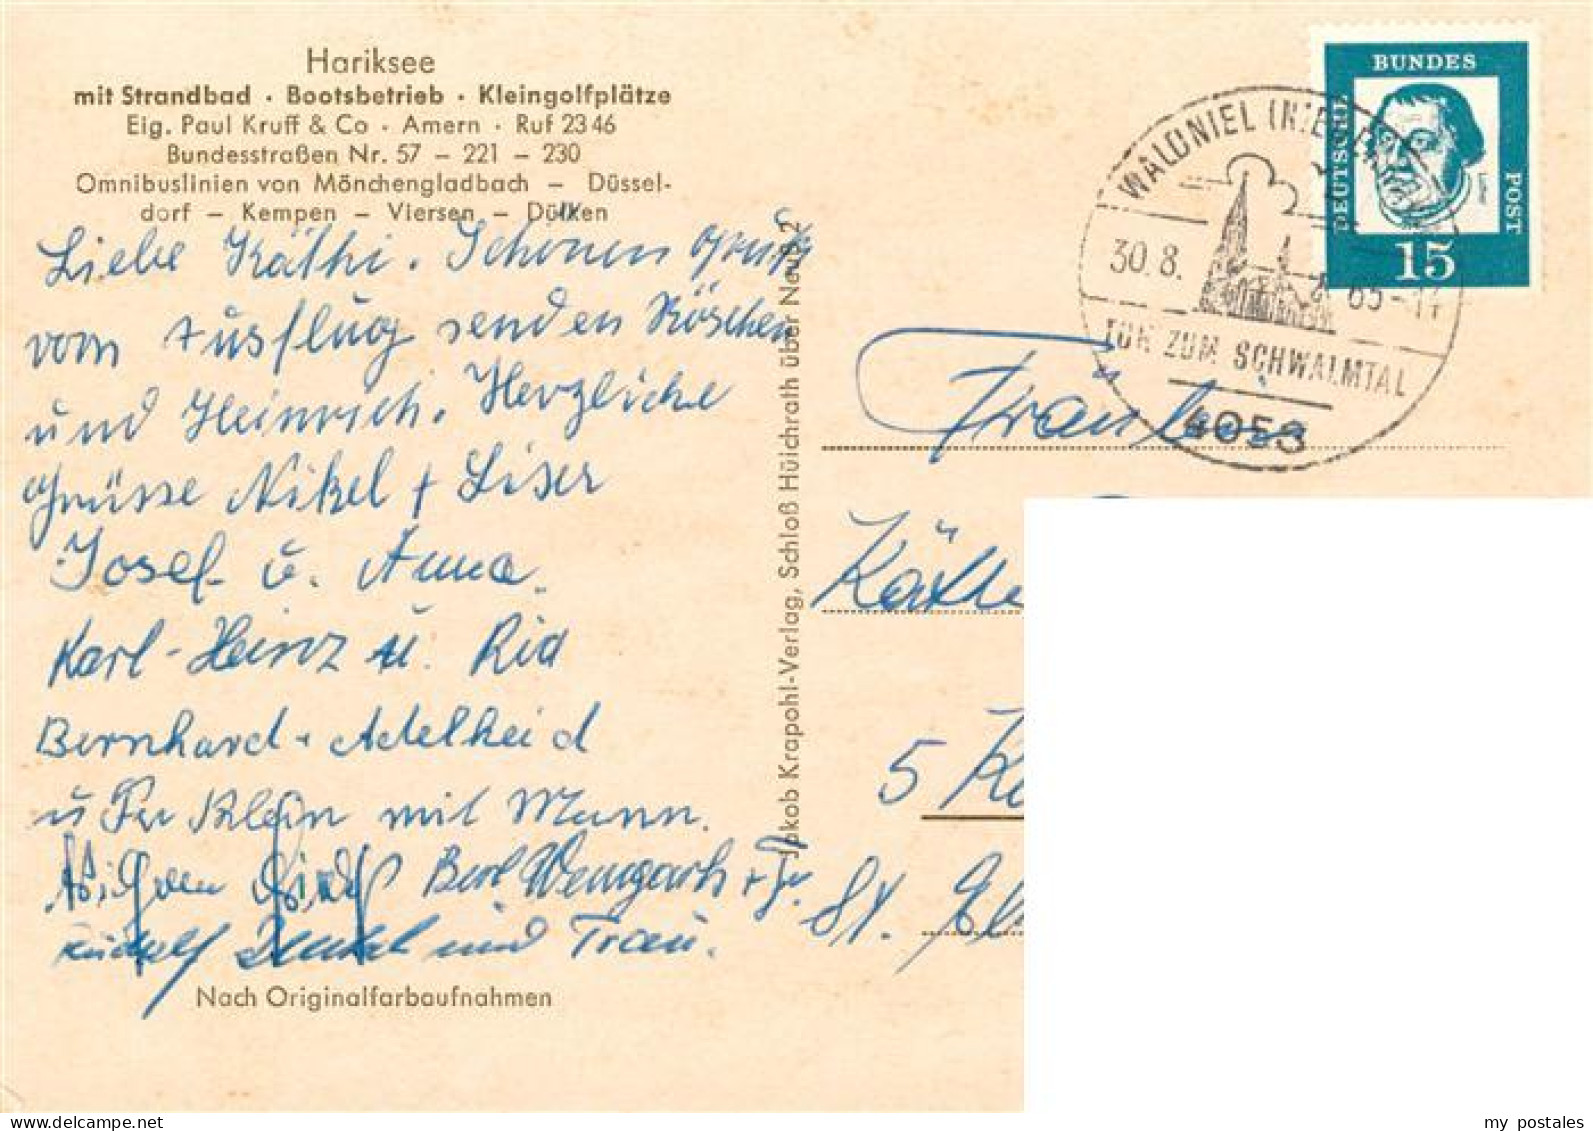 Hariksee
mit Strandbad · Bootsbetrieb · Kleingolfplätze
Eig. Paul Kruff & Co · Amern · Ruf 23 46
Bundesstraßen Nr. 57 – 221 – 230
Omnibuslinien von Mönchengladbach – Düssel-
dorf – Kempen – Viersen – Dülken
Liebe Käthi. Schönen Gruß
vom Ausflug senden Röschen
und Heinrich. Herzliche
Grüsse Nikel + Liser
Josef u. Anna.
Karl-Heinz u. Ria
Bernhard + Adelheid
u Frr Klein mit Mann.
+ Fr.
Rudolf und Frau.
Nach Originalfarbaufnahmen
Jakob Krapohl-Verlag, Schloß Hülchrath über Neuß 2
BUNDES
DEUTSCHE
POST
Luther
15
WALDNIEL
30.8. 65-
TOR ZUM SCHWALMTAL
4053
Fräulein
Käthe
5 Kö
St.
my postales